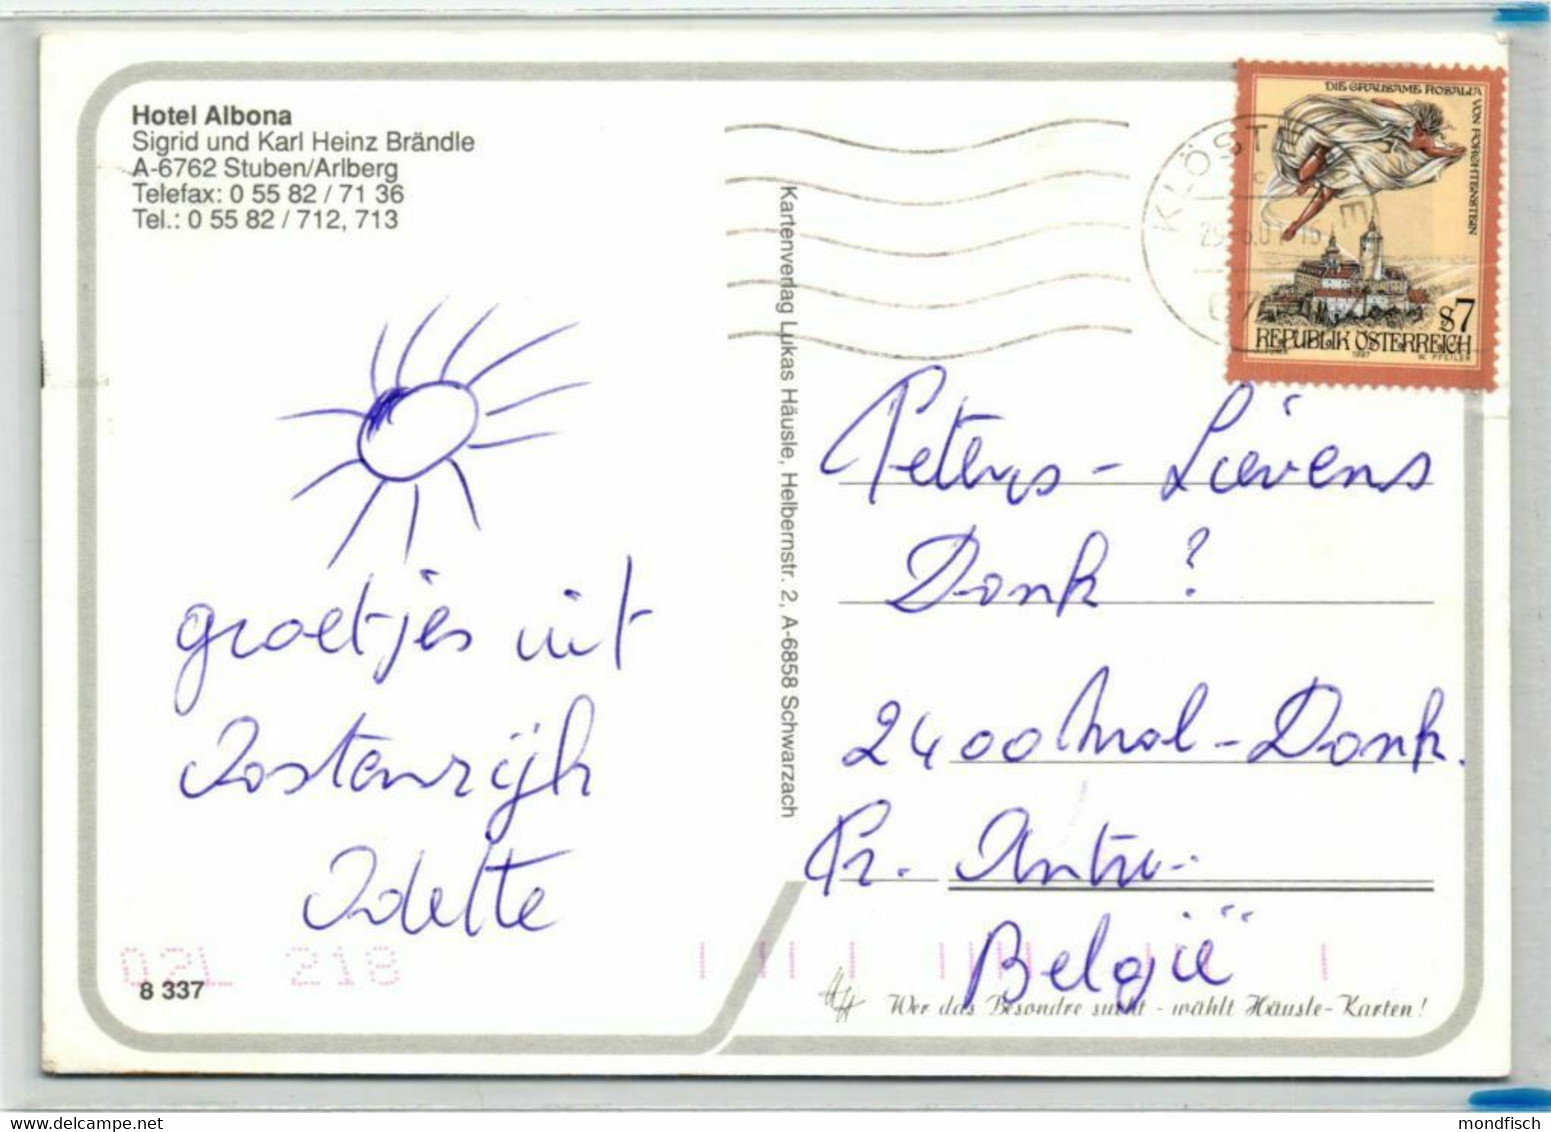 Hotel Albona
Sigrid und Karl Heinz Brändle
A-6762 Stuben/Arlberg
Telefax: 0 55 82 / 71 36
Tel.: 0 55 82 / 712, 713
groetjes uit
Oostenrijk
Odette
02L 218
8 337
Kartenverlag Lukas Häusle, Helbernstr. 2, A-6858 Schwarzach
KLÖSTE
DIE GRAUSAME ROSALIA
VON FORCHTENSTEIN
S7
REPUBLIK ÖSTERREICH
1997
W. PFEILER
Peters - Lievens
Donk ?
2400 Mol - Donk.
Pr. Antw.
België
Wer das Besondre sucht - wählt Häusle-Karten!
www.delcampe.net
mondfisch